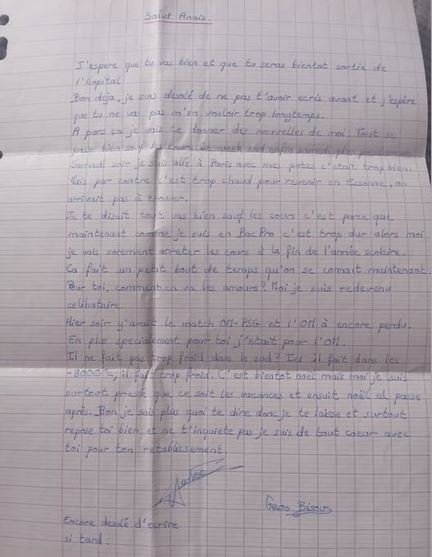 Salut Anais.
J'espere que tu vas bien et que tu seras bientot sortie de
l'hopital
Bon deja, je suis desolé de ne pas t'avoir ecris avant et j'espère
que tu ne vas pas m'en vouloir trop longtemps.
A part ça je vais te donner des nouvelles de moi. Tout se
passe bien sauf les cours
Samedi soir je suis allé à Paris avec mes potes c'était trop bien.
Mais par contre c'est trop chaud pour revenir en Essonne, on
arrivait pas à trouver.
Je te disait tout vas bien sauf les cours c'est parce que
maintenant comme je suis en Bac Pro c'est trop dur alors moi
je vais surement arreter les cours à la fin de l'année scolaire.
Ca fait un petit bout de temps qu'on se connait maintenant.
Pour toi, comment ça va les amours? Moi je suis redevenu
celibataire.
Hier soir y'avait le match OM-PSG et l'OM à encore perdu.
En plus specialement pour toi j'etait pour l'OM.
Il ne fait pas trop froid dans le sud? Ici il fait dans les
-8000°c, il fait trop froid. C'est bientot noël mais moi je suis
surtout pressé que ce soit les vacances et ensuit noël ca passe
après. Bon je sais plus quoi te dire donc je te laisse et surtout
repose toi bien et ne t'inquiete pas je suis de tout coeur avec
toi pour ton retablissement
Gros Bisous
Encore desolé d'ecrire
si tard.